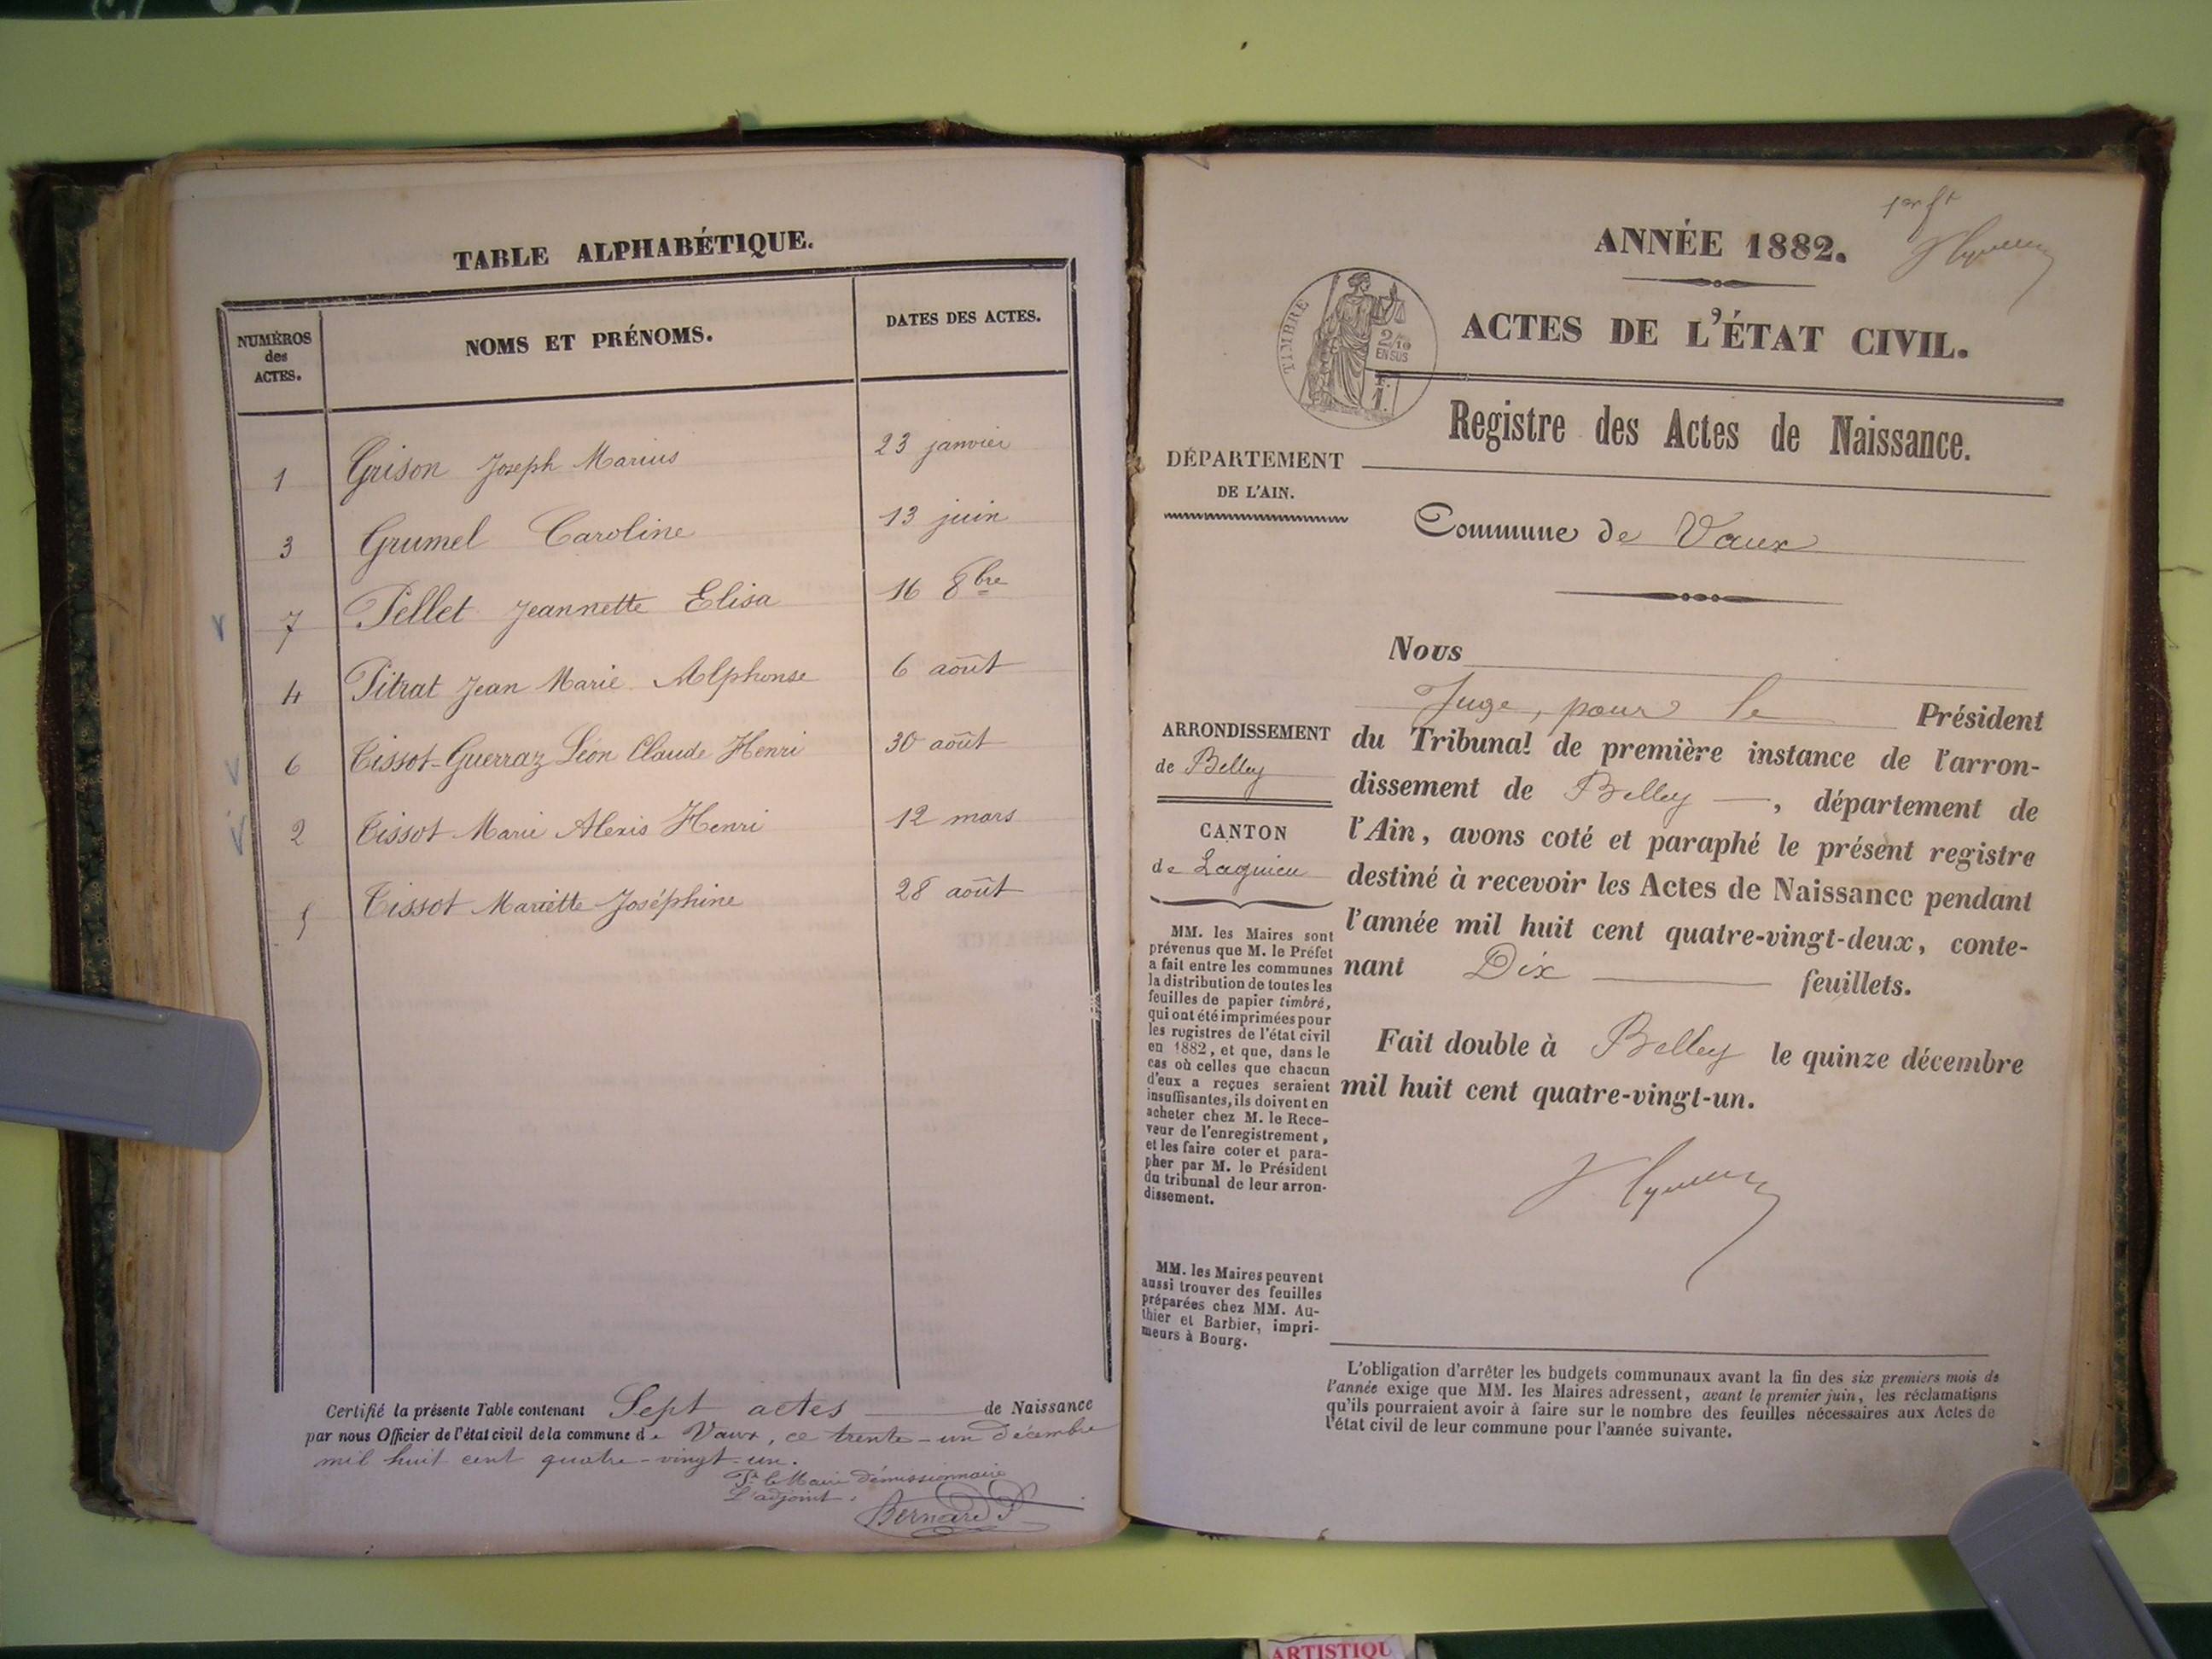 TABLE ALPHABÉTIQUE.
NUMÉROS
des
ACTES.
NOMS ET PRÉNOMS.
DATES DES ACTES.
1 Grison Joseph Marius 23 janvier
3 Grumel Caroline 13 juin
7 Pellet Jeannette Elisa 16 8bre
4 Pitrat Jean Marie Alphonse 6 août
6 Tissot-Guerraz Léon Claude Henri 30 août
2 Tissot Marie Alexis Henri 12 mars
5 Tissot Mariette Joséphine 28 août
Certifié la présente Table contenant Sept actes de Naissance
par nous Officier de l'état civil de la commune de Vaux, ce trente-un Décembre
mil huit cent quatre-vingt-un.
Pr le Maire démissionnaire
L'adjoint.
Bernard P
1er ft
ANNÉE 1882.
TIMBRE
2/10
EN SUS
1 F.
ACTES DE L'ÉTAT CIVIL.
Registre des Actes de Naissance.
DÉPARTEMENT
DE L'AIN.
Commune de Vaux
Nous
Juge, pour le Président
du Tribunal de première instance de l'arron-
dissement de Belley, département de
l'Ain, avons coté et paraphé le présent registre
destiné à recevoir les Actes de Naissance pendant
l'année mil huit cent quatre-vingt-deux, conte-
nant Dix feuillets.
Fait double à Belley le quinze décembre
mil huit cent quatre-vingt-un.
ARRONDISSEMENT
de Belley
CANTON
de Lagnieu
MM. les Maires sont
prévenus que M. le Préfet
a fait entre les communes
la distribution de toutes les
feuilles de papier timbré,
qui ont été imprimées pour
les registres de l'état civil
en 1882, et que, dans le
cas où celles que chacun
d'eux a reçues seraient
insuffisantes, ils doivent en
acheter chez M. le Rece-
veur de l'enregistrement,
et les faire coter et para-
pher par M. le Président
du tribunal de leur arron-
dissement.
MM. les Maires peuvent
aussi trouver des feuilles
préparées chez MM. Au-
thier et Barbier, impri-
meurs à Bourg.
L'obligation d'arrêter les budgets communaux avant la fin des six premiers mois de
l'année exige que MM. les Maires adressent, avant le premier juin, les réclamations
qu'ils pourraient avoir à faire sur le nombre des feuilles nécessaires aux Actes de
l'état civil de leur commune pour l'année suivante.
ARTISTIQU